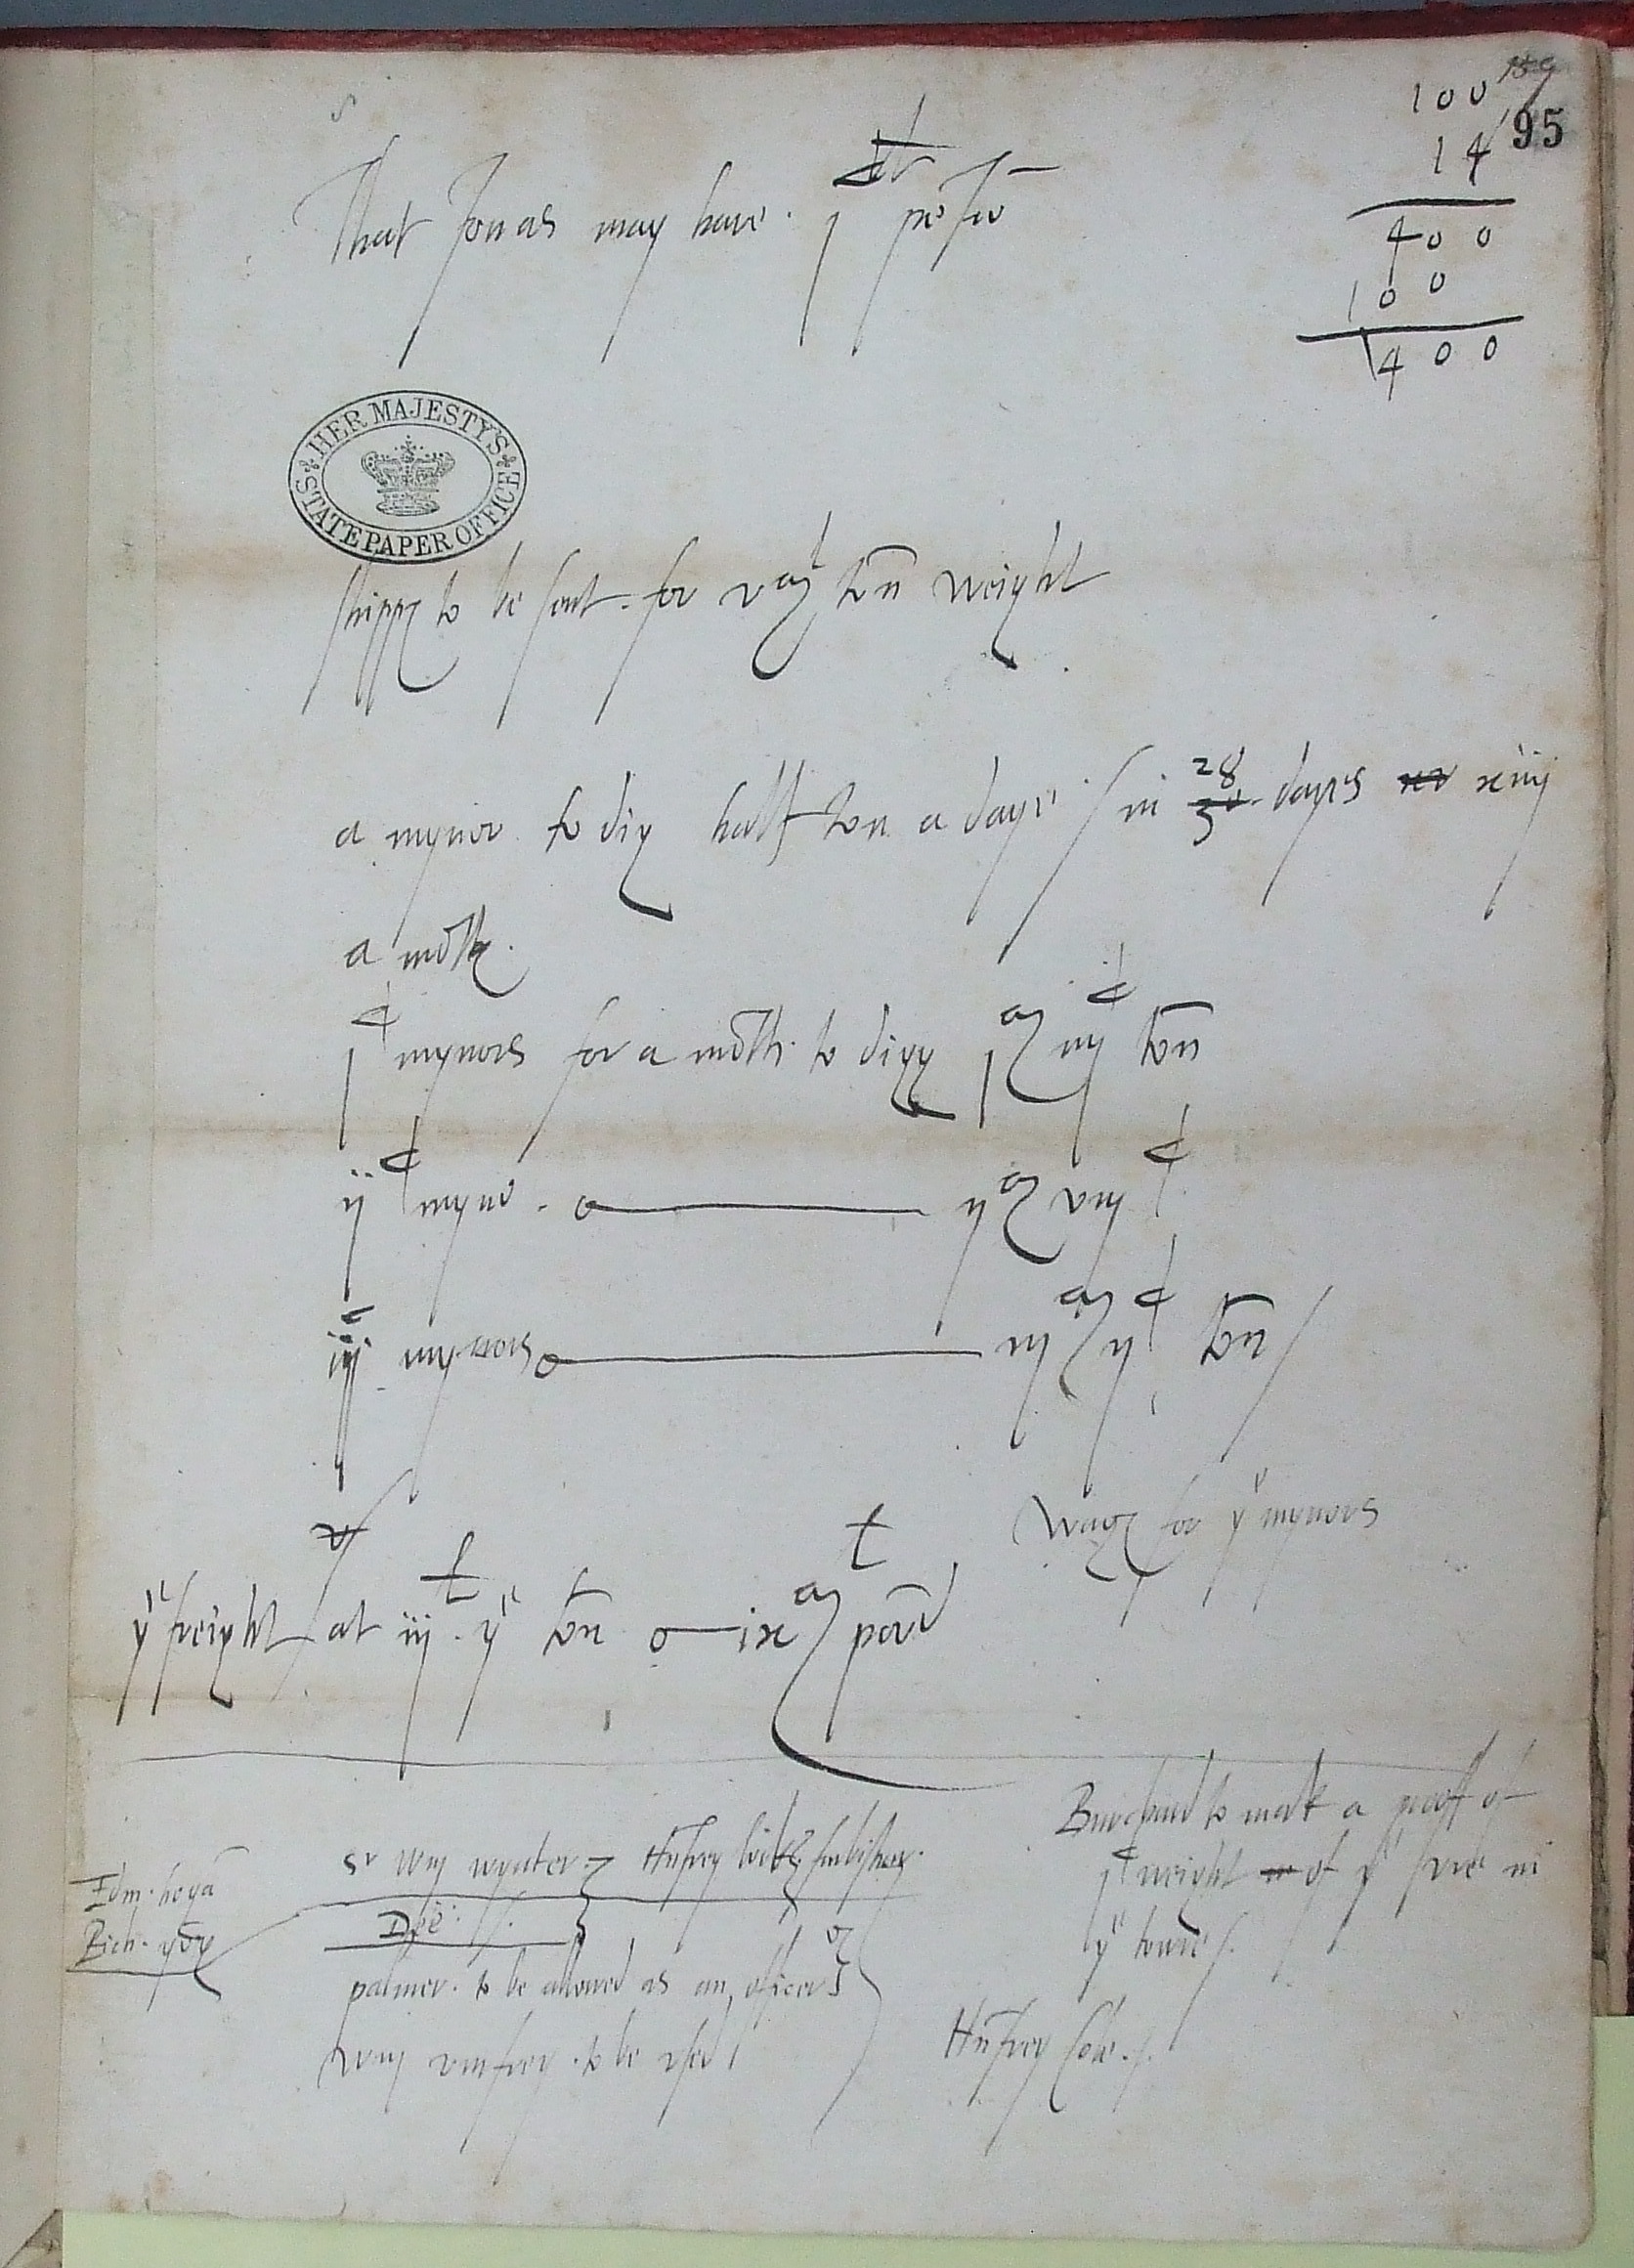 100
14
95
400
100
1400
That Jonas may have j
HER MAJESTY'S STATE PAPER OFFICE
shipps to be sent for vm ton weight
a mynor to dig half ton a daye / in 28 30 dayes xv xiiij
a moth
jC mynors for a moth to digg jm iiijC ton
ijC myno o— ijm viijC
iijC mynors o— iiijm ijC ton /
Wages for ye mynors
ye freight at iij li ye ton o— ixm pound
Edm. hogā
Rich. yōg
Sr Wm wynter Hūfrey lock furbisher
Dee
palmer. to be allowed as an officer
Wm vmfrey. to be used
Burchard to make a proof of
jC weight of ye in
ye towre
Hūfrey Cole